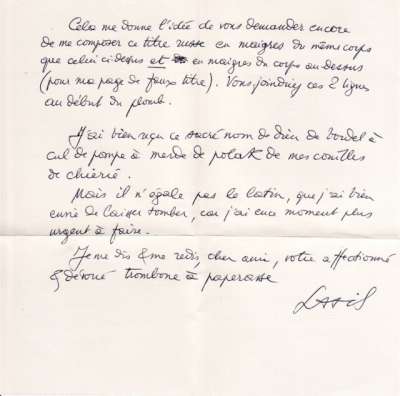 Cela me donne l'idée de vous demander encore
de me composer ce titre en maigres du même corps
que celui ci-dessus et en maigres du corps au-dessus
(pour ma page de faux titre). Vous joindriez ces 2 lignes
au début du plomb.
J'ai bien reçu ce sacré nom de dieu de bordel à
cul de pompe à merde de polak de mes couilles
de chierie.
Mais il n'égale pas le latin, que j'ai bien
envie de laisser tomber, car j'ai en ce moment plus
urgent à faire.
Je me dis & me redis, cher ami, votre affectionné
& dévoué trombone à paperasse